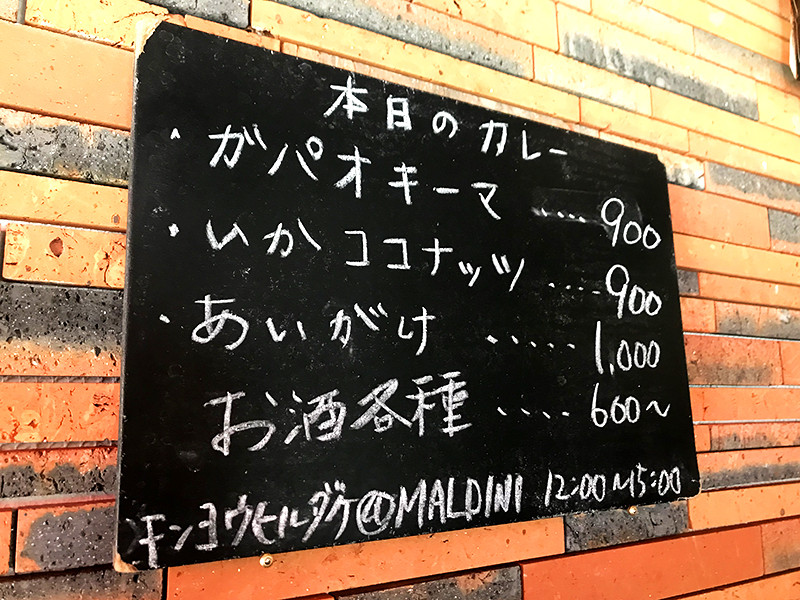 本日のカレー
・ガパオキーマ ····· 900
・いかココナッツ ····· 900
・あいがけ ····· 1,000
お酒各種 ····· 600〜
モンヨウヒルダケ@MALDINI 12:00〜15:00